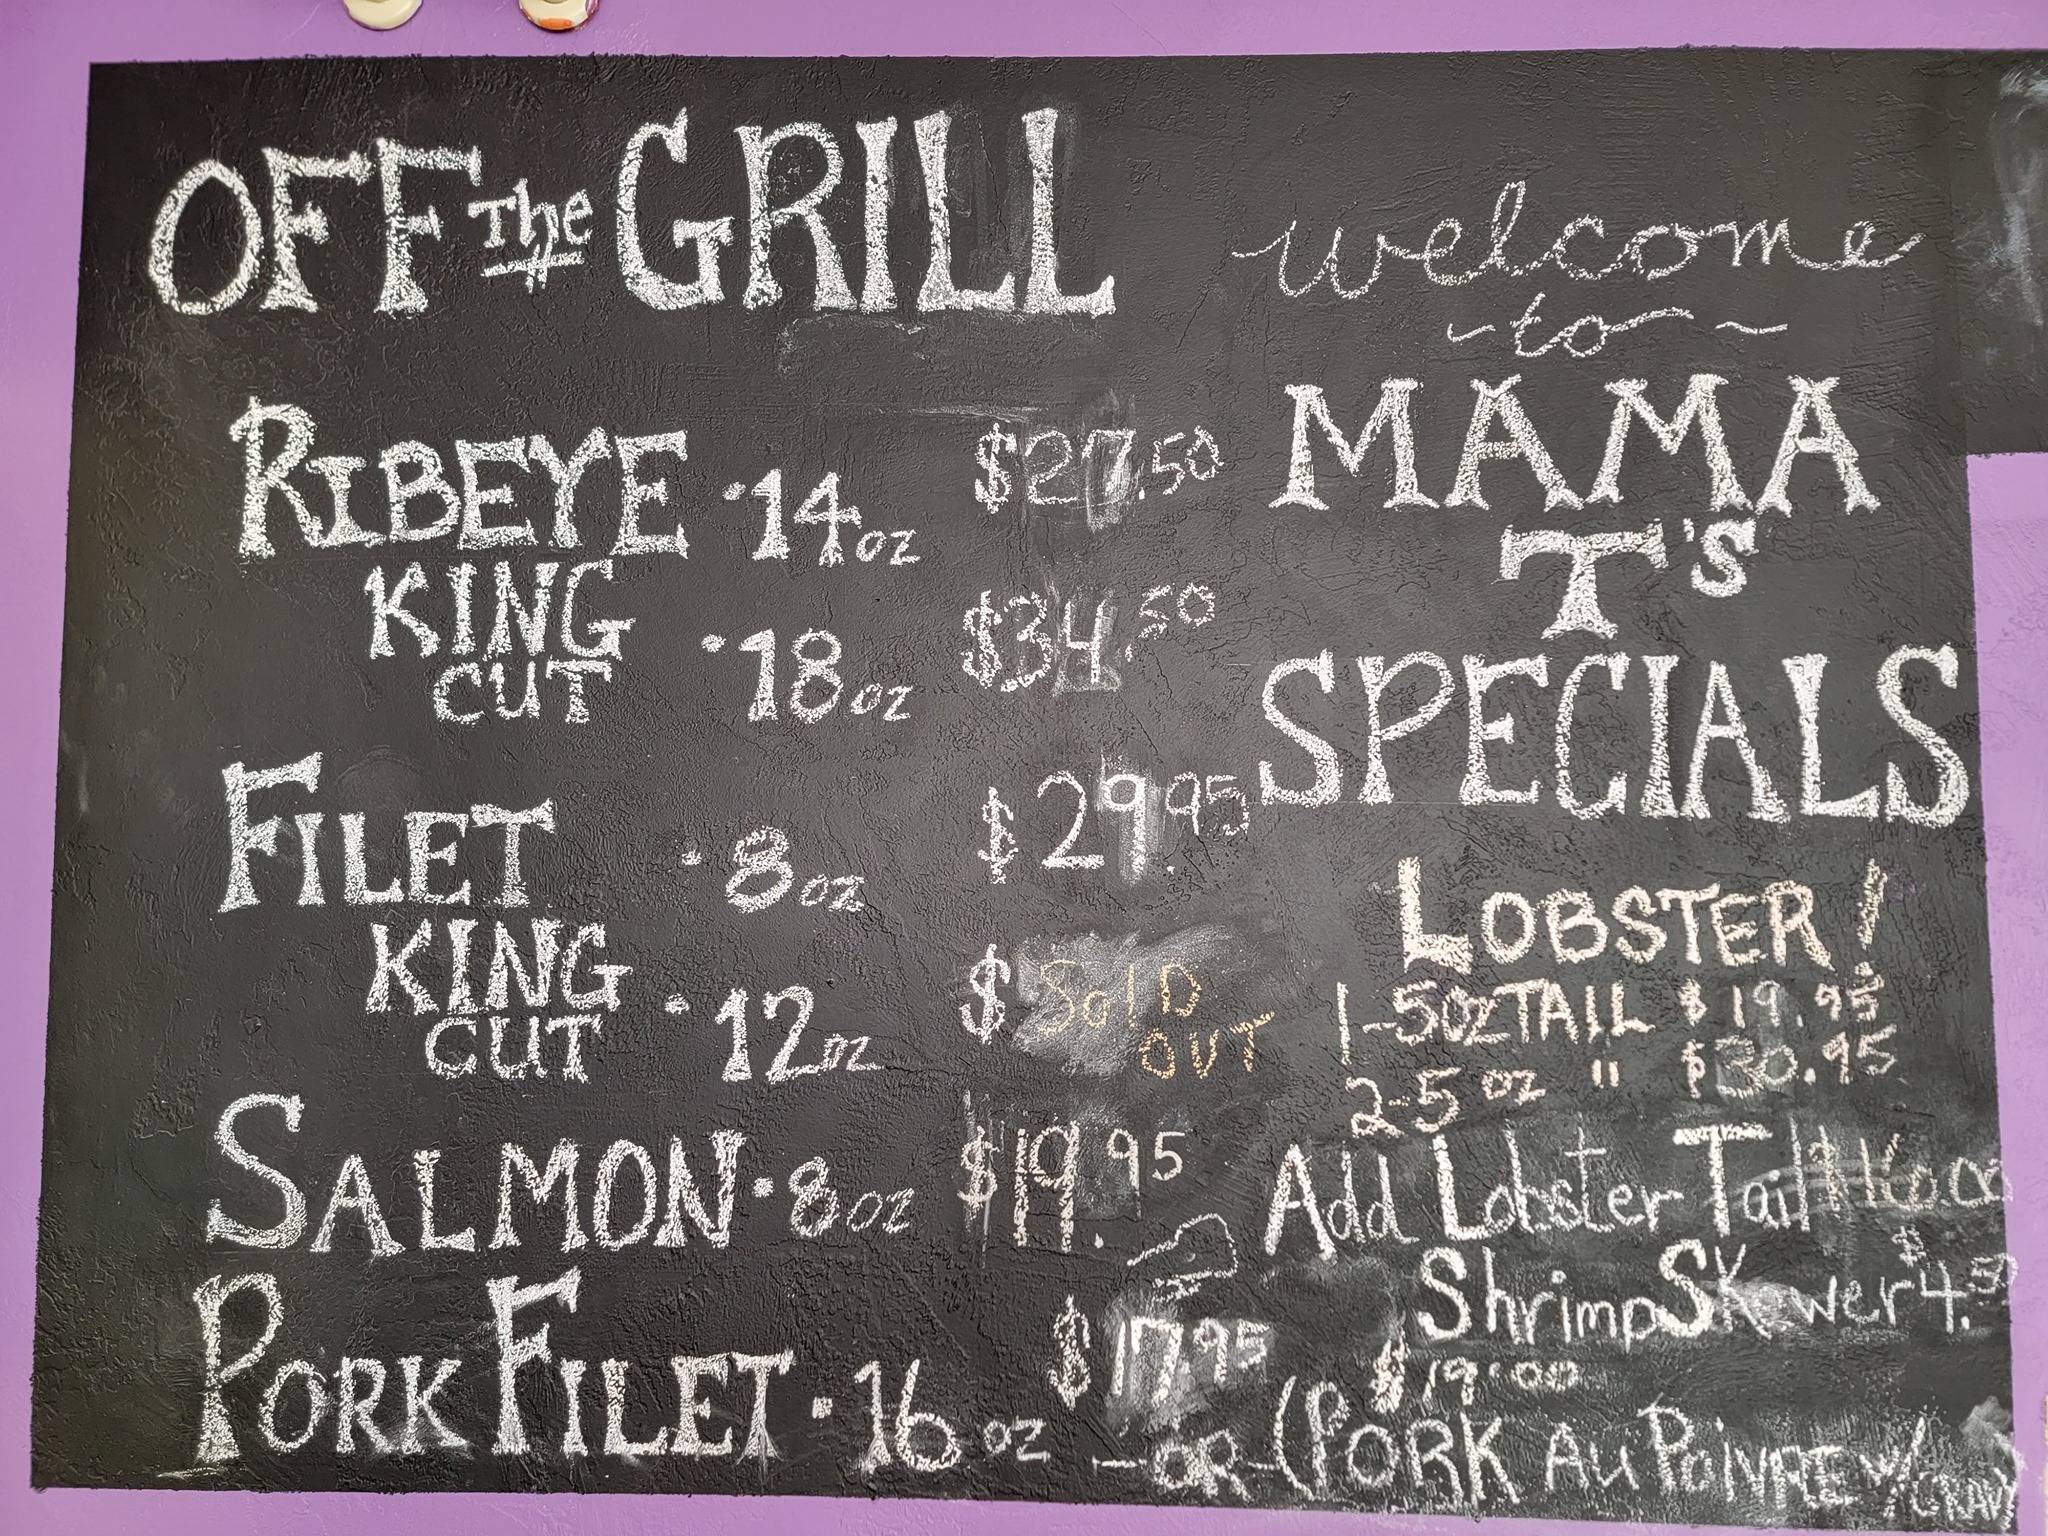 OFF The GRILL
RIBEYE · 14oz $27.50
KING CUT · 18oz $34.50
FILET · 8oz $29.95
KING CUT · 12oz $ SolD OUT
SALMON · 8oz $19.95
PORK FILET · 16oz $17.95
-OR- (PORK AU POIVRE W/GRAVY
$19.00
welcome
~to~
MAMA
T's
SPECIALS
LOBSTER!
1-5ozTAIL $19.95
2-5oz " $30.95
Add Lobster Tail $16.00
Shrimp SKewer $4.50